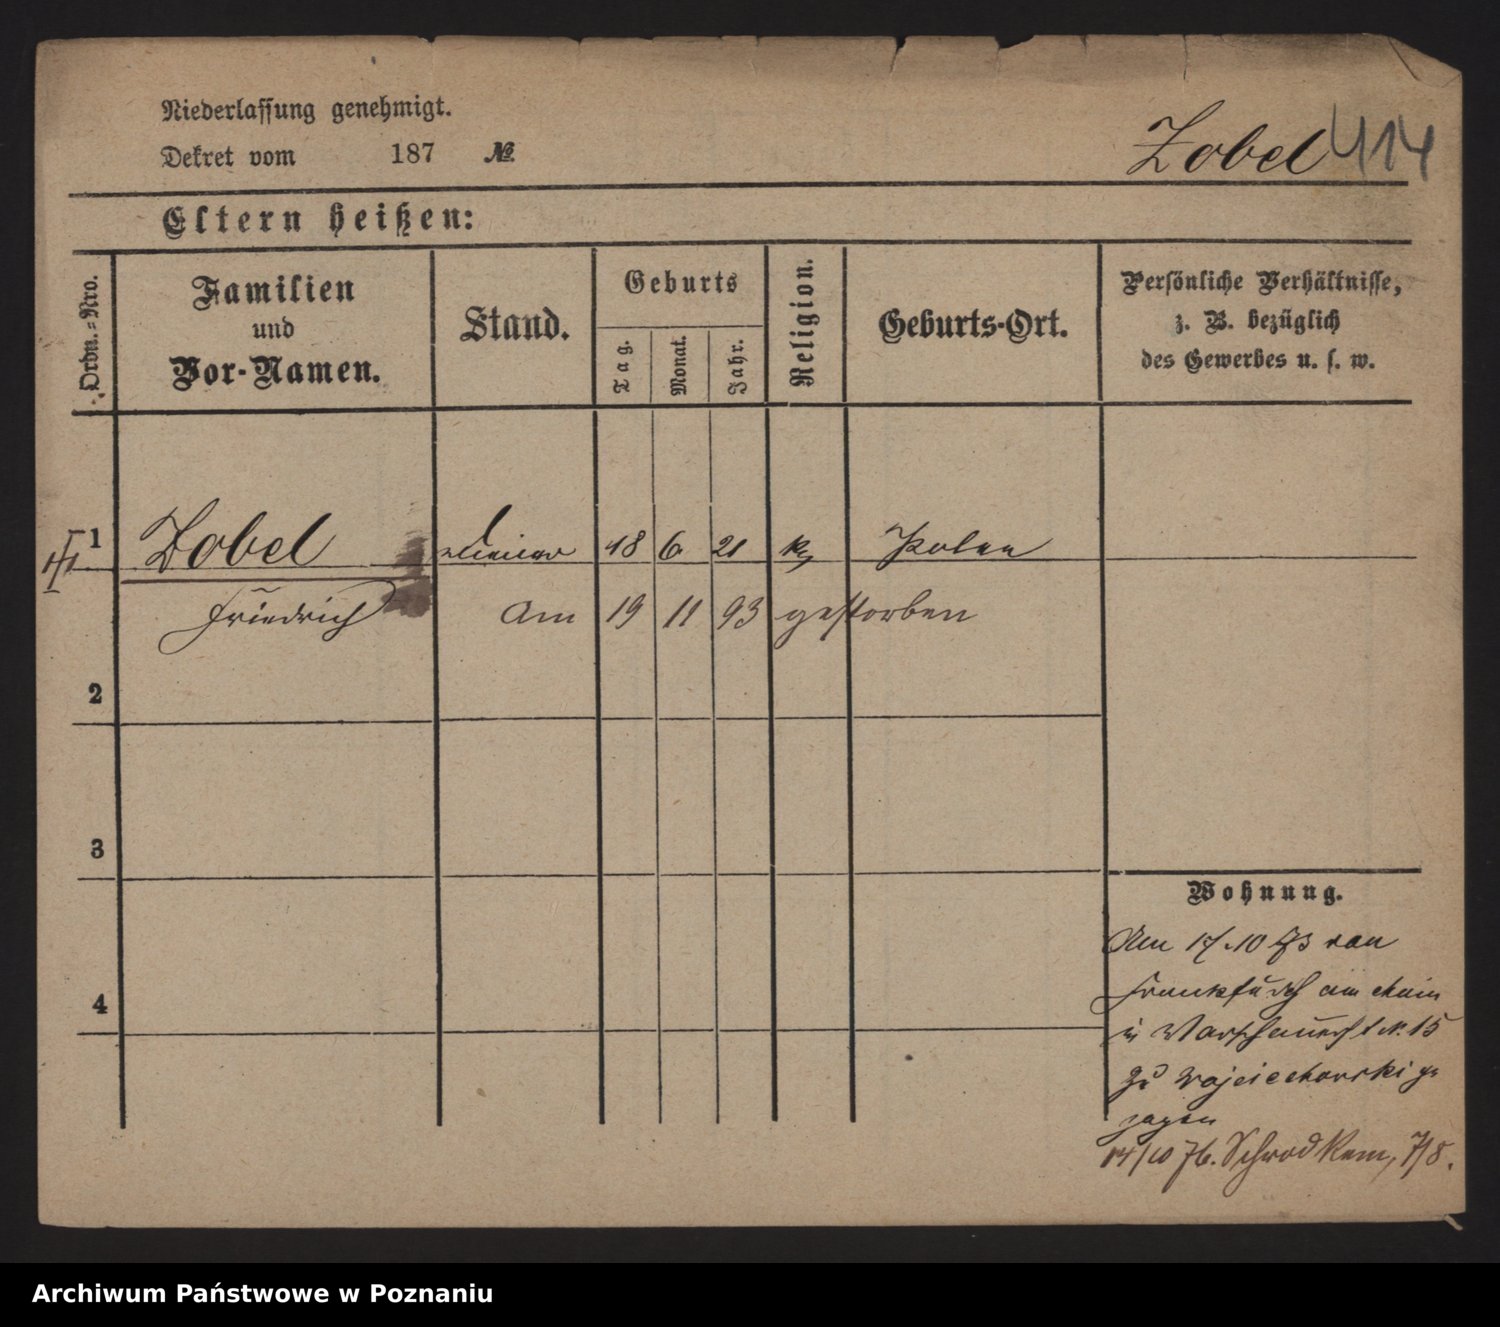 Niederlassung genehmigt.
Dekret vom 187 №
Zobel 414
Eltern heißen:
Ordn.-Nro.
Familien
und
Vor-Namen.
Stand.
Geburts
Tag.
Monat.
Jahr.
Religion.
Geburts-Ort.
Persönliche Verhältnisse,
z. B. bezüglich
des Gewerbes u. s. w.
1 Zobel 18 6 21 Polen
Friedrich Am 19 11 93 gestorben
2
3
4
Wohnung.
Am 17.10 73 von
Frankfurth am Main
in Warschauerst N. 15
zu Wojciechowski ge
zogen
14/10 76. Schrodkam, 7/8.
Archiwum Państwowe w Poznaniu